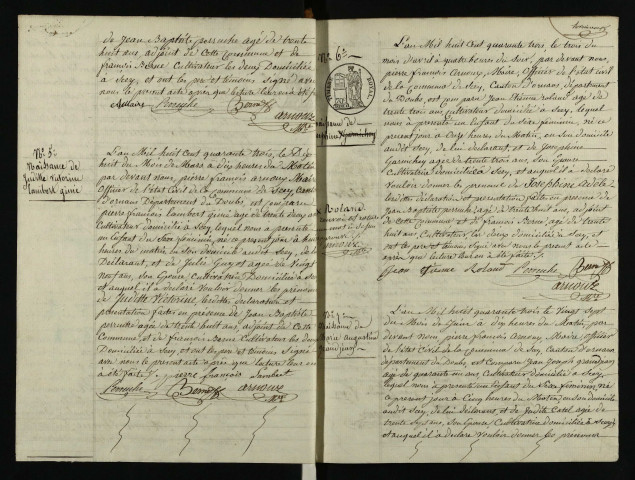 de Jean Baptiste perruche agé de trente
huit ans, adjoint de Cette Commune et de
françois Bernse Cultivateur les deux Domiciliés
à Scey, et ont les père et témoins signé avec
nous le present acte après que lecture leur en a été faite
Perruche Arnoux
Mre
N° 5
Naissance de
Judith Victorine
Lambert
L'an Mil huit Cent quarante trois, le Dix
huit du Mois de Mars à dix heures du Matin
par devant nous, pierre françois arnoux Maire
Officier de l'état Civil de la commune de Scey, Canton
d'ornans Département du Doubs, est comparu
pierre françois Lambert agé de trente deux ans
Cultivateur domicilié à Scey, lequel nous a presenté
un Enfant du Sexe féminin, né ce present jour à
heures du matin en son domicile audit Scey, de lui
Déclarant, et de Julie Guy agée de Vingt
neuf ans, son Epouse Cultivatrice Domiciliée à Scey
et auquel il a déclaré Vouloir donner les prénoms
de Judith Victorine, lesdites déclaration et
presentation faites en presence de Jean Baptiste
perruche agé de trente huit ans, adjoint de Cette
Commune et de françois Cultivateur les deux
Domiciliés à Scey, et ont les père et témoins Signé
avec nous le present acte après que lecture leur en
a été faite. pierre françois Lambert
Perruche Arnoux
Mre
N° 6
Naissance de
Roland
N° 7
Naissance de
Marie Augustine
Grandjean
L'an Mil huit Cent quarante trois, le trois du
mois d'avril à quatre heures du Soir, par devant nous,
pierre françois Arnoux, Maire, Officier de l'état civil
de la Commune de Scey, Canton d'Ornans, département
du Doubs, est comparu Jean Etienne Roland agé de
trente trois ans, cultivateur domicilié à Scey, lequel
nous a presenté un Enfant du Sexe féminin, né ce
present jour à onze heures du Matin, en son domicile
audit Scey, de lui déclarant et de Josephine
agée de trente trois ans, son Epouse
Cultivatrice domiciliée à Scey, et auquel il a déclaré
Vouloir donner le prenom de Josephine Adèle
lesdites déclaration et presentation faites en presence de
Jean Baptiste perruche agé de trente huit ans, adjoint
de cette Commune et de françois agé de trente
huit ans, Cultivateur les deux domiciliés à Scey, et
ont les père et témoins Signé avec nous le present acte
après que lecture leur en a été faite.
Jean Etienne Roland Perruche
Arnoux
Mre
L'an Mil huit Cent quarante trois le Vingt Sept
du Mois de Juin à dix heures du Matin, par
devant Nous pierre françois Arnoux, Maire, officier
de l'état Civil de la commune de Scey, Canton d'ornans
département du Doubs, est Comparu Jean Joseph grandjean
agé de quarante un ans Cultivateur domicilié à Scey
lequel nous a presenté un Enfant du Sexe féminin, né
ce present jour à Cinq heures du Matin en son domicile
audit Scey, de lui déclarant, et de Judith Catel agée de
trente Sept ans, Son Epouse, Cultivatrice domiciliée à Scey
et auquel il a déclaré Vouloir donner les prenoms